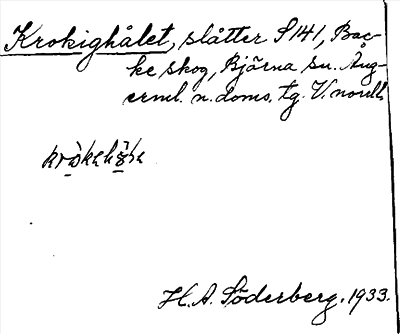 Krokighålet, slåtter S 141, Bac-
ke skog, Bjärna sn. Ång-
erml. n. doms. tg. V. norrl.
H. A. Söderberg. 1933.